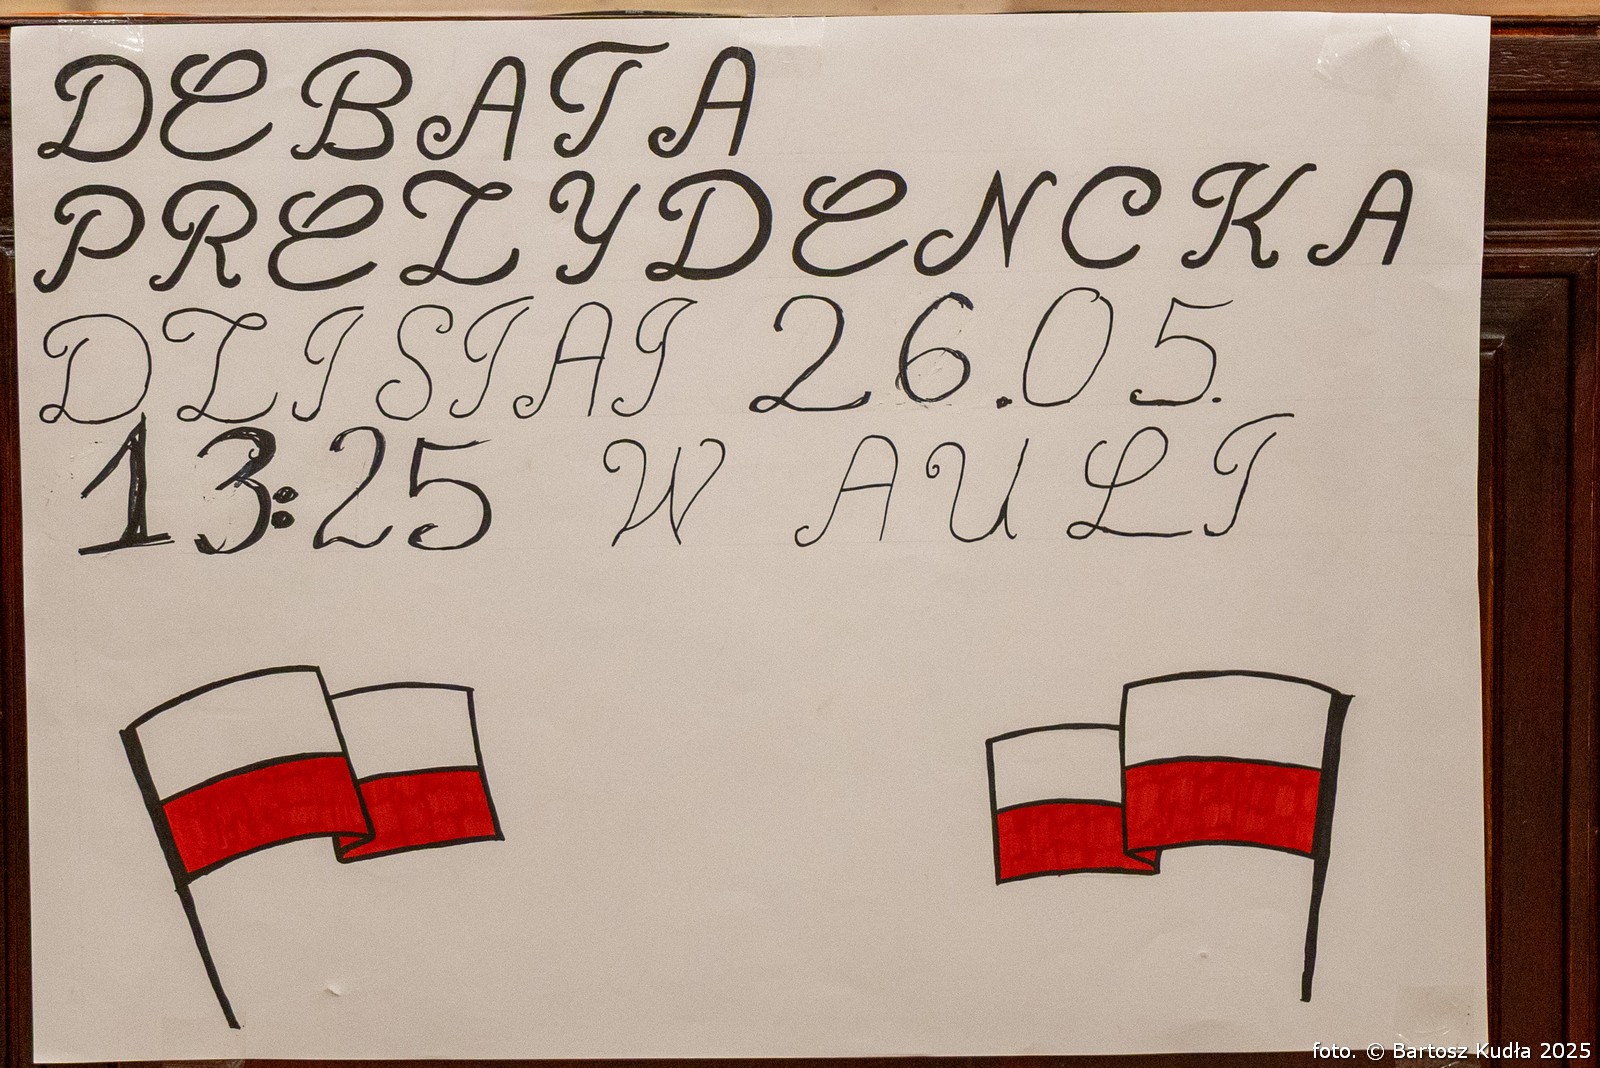 DEBATA
PREZYDENCKA
DZISIAJ 26.05.
13:25 W AULI
foto. © Bartosz Kudła 2025